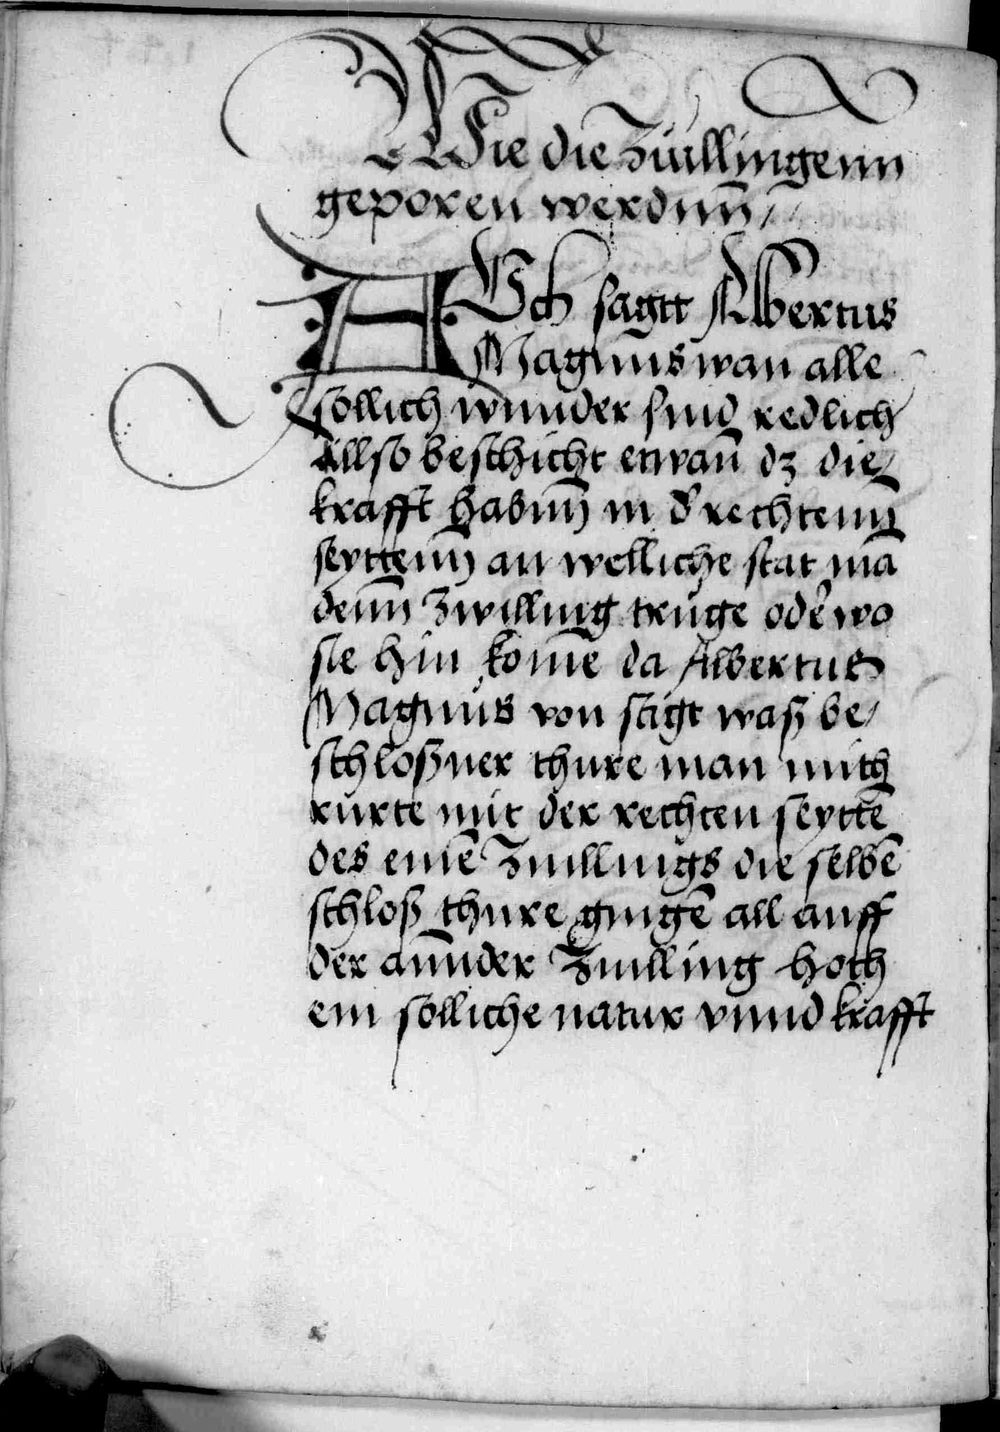 Wie die Zwillingenn
geporen werdnn̄
AUch sagtt Albertus
Magnus wan alle
sollich wunder sind redlich
Allso beschicht etwan̄ dz die
krafft habnn̄ in d' rechtenn̄
seyttenn an welliche stat mā
denn̄ zwilling truge oder wo
sie hin komē da Albertus
Magnus von sagt waß be/
schloßner thure man mitt
rurte mit der rechten seyttē
des einē Zwillings die selbē
schloß thure gingē all auff
der annder Zwilling hoch
ein solliche natur vnnd krafft